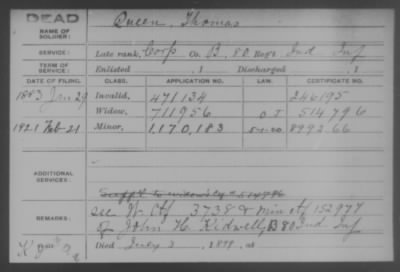 DEAD
NAME OF SOLDIER: Queen, Thomas
SERVICE: Late rank, Corp Co. B, 80 Reg't Ind Inf
TERM OF SERVICE: Enlisted , 1 Discharged , 1
DATE OF FILING. CLASS. APPLICATION NO. LAW. CERTIFICATE NO.
1883 Jan 29 Invalid, 471134 246195
Widow, 711956 O J 514796
1921 Feb-21 Minor, 1,170,183 8992.66
ADDITIONAL SERVICES:
REMARKS: see W. Ctf 3738 & Min ctf 152977
of John H. Kidwell, B 80 Ind Inf
Died July 3, 1898, at